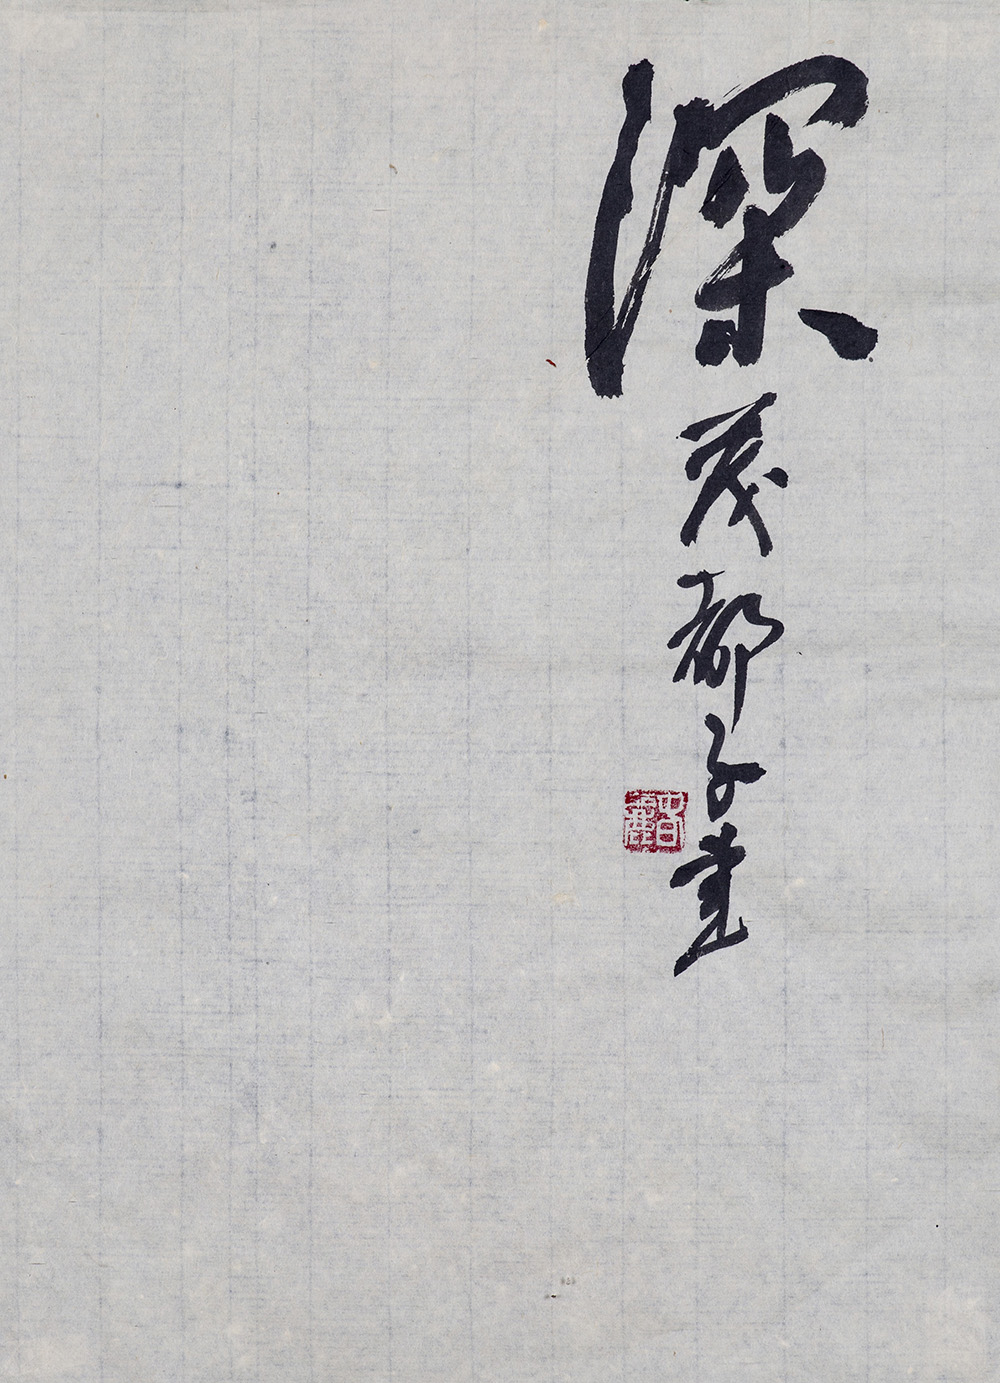 深茂都子書